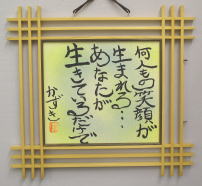 何人もの笑顔が
生まれる…
あなたが
生きているだけで
かずき